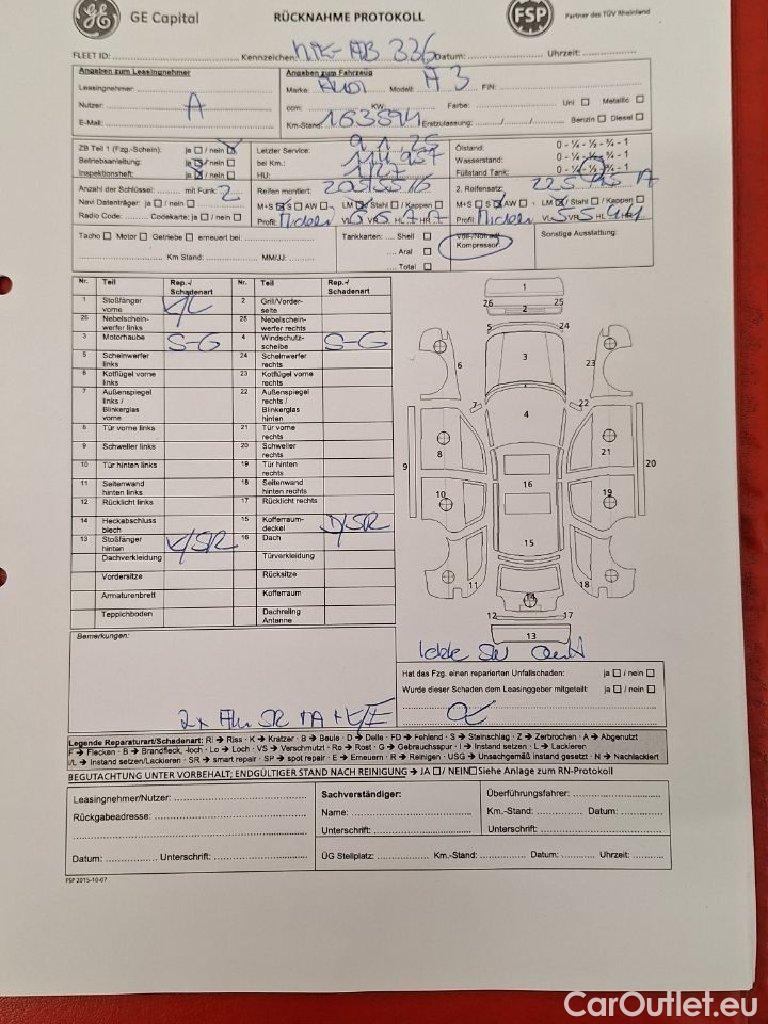 GE Capital RÜCKNAHME PROTOKOLL FSP Partner des TÜV Rheinland
FLEET ID: Kennzeichen: Datum: Uhrzeit:
Angaben zum Leasingnehmer
Leasingnehmer:
Nutzer: A
E-Mail:
Angaben zum Fahrzeug
Marke: Audi Modell: A3 FIN:
ccm: KW Farbe: Uni Metallic
Km-Stand: 163894 Erstzulassung: Benzin Diesel
ZB Teil 1 (Fzg.-Schein): ja / nein
Betriebsanleitung: ja / nein
Inspektionsheft: ja / nein
Letzter Service: 9.1.25
bei Km.: 114957
HU: 1/27
Ölstand: 0 - ¼ - ½ - ¾ - 1
Wasserstand: 0 - ¼ - ½ - ¾ - 1
Füllstand Tank: 0 - ¼ - ½ - ¾ - 1
Anzahl der Schlüssel: mit Funk: 2
Navi Datenträger: ja / nein
Radio Code: Codekarte: ja / nein
Reifen montiert: 205/55 16
M+S S AW LM / Stahl / Kappen
Profil: VL VR HL HR
2. Reifensatz:
M+S S AW LM / Stahl / Kappen
Profil: VL VR HL HR
Tacho Motor Getriebe erneuert bei
Km Stand: MM/JJ:
Tankkarten: Shell
Aral
Total
Kompressor
Sonstige Ausstattung:
Nr. Teil Rep.-/ Schadenart Nr. Teil Rep.-/ Schadenart
1 Stoßfänger vorne K/L 2 Grill/Vorderseite
25 Nebelscheinwerfer links 26 Nebelscheinwerfer rechts
3 Motorhaube S-G 4 Windschutzscheibe S-G
5 Scheinwerfer links 24 Scheinwerfer rechts
6 Kotflügel vorne links 23 Kotflügel vorne rechts
7 Außenspiegel links / Blinkerglas vorne 22 Außenspiegel rechts / Blinkerglas hinten
8 Tür vorne links 21 Tür vorne rechts
9 Schweller links 20 Schweller rechts
10 Tür hinten links 19 Tür hinten rechts
11 Seitenwand hinten links 18 Seitenwand hinten rechts
12 Rücklicht links 17 Rücklicht rechts
14 Heckabschluss blech 15 Kofferraumdeckel D/SR
13 Stoßfänger hinten K/SR 16 Dach
Dachverkleidung Türverkleidung
Vordersitze Rücksitze
Armaturenbrett Kofferraum
Teppichboden Dachreling Antenne
1
26 25
2
5 24
3
6 23
7 22
4
8 21
9 20
10 16 19
15
11 18
14
12 17
13
Bemerkungen:
Hat das Fzg. einen reparierten Unfallschaden: ja / nein
Wurde dieser Schaden dem Leasinggeber mitgeteilt: ja / nein
Legende Reparaturart/Schadenart: Ri → Riss - K → Kratzer - B → Beule - D → Delle - FD → Fehlend - S → Steinschlag - Z → Zerbrochen - A → Abgenutzt
F → Flecken - B → Brandfleck, -loch - Lo → Loch - VS → Verschmutzt - Ro → Rost - G → Gebrauchsspur - I → Instand setzen - L → Lackieren
I/L → Instand setzen/Lackieren - SR → smart repair - SP → spot repair - E → Erneuern - R → Reinigen - USG → Unsachgemäß instand gesetzt - N → Nachlackiert
BEGUTACHTUNG UNTER VORBEHALT; ENDGÜLTIGER STAND NACH REINIGUNG → JA / NEIN Siehe Anlage zum RN-Protokoll
Leasingnehmer/Nutzer:
Rückgabeadresse:
Datum: Unterschrift:
Sachverständiger:
Name:
Unterschrift:
Überführungsfahrer:
Km.-Stand: Datum:
Unterschrift:
ÜG Stellplatz: Km.-Stand: Datum: Uhrzeit:
FSP 2015-10-07
CarOutlet.eu